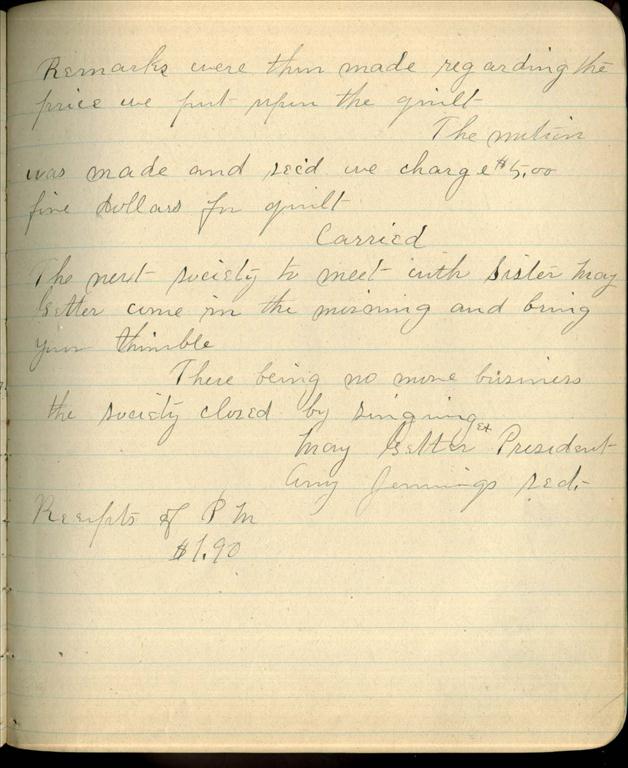 Remarks were then made regarding the
price we put upon the quilt
The motion
was made and sec'd we charge $5.00
five dollars for quilt
Carried
The next society to meet with Sister May
come in the morning and bring
your thimble
There being no more business
the society closed by singing
May Ex President
Amy Jennings sec.
Receipts of P M
$1.90